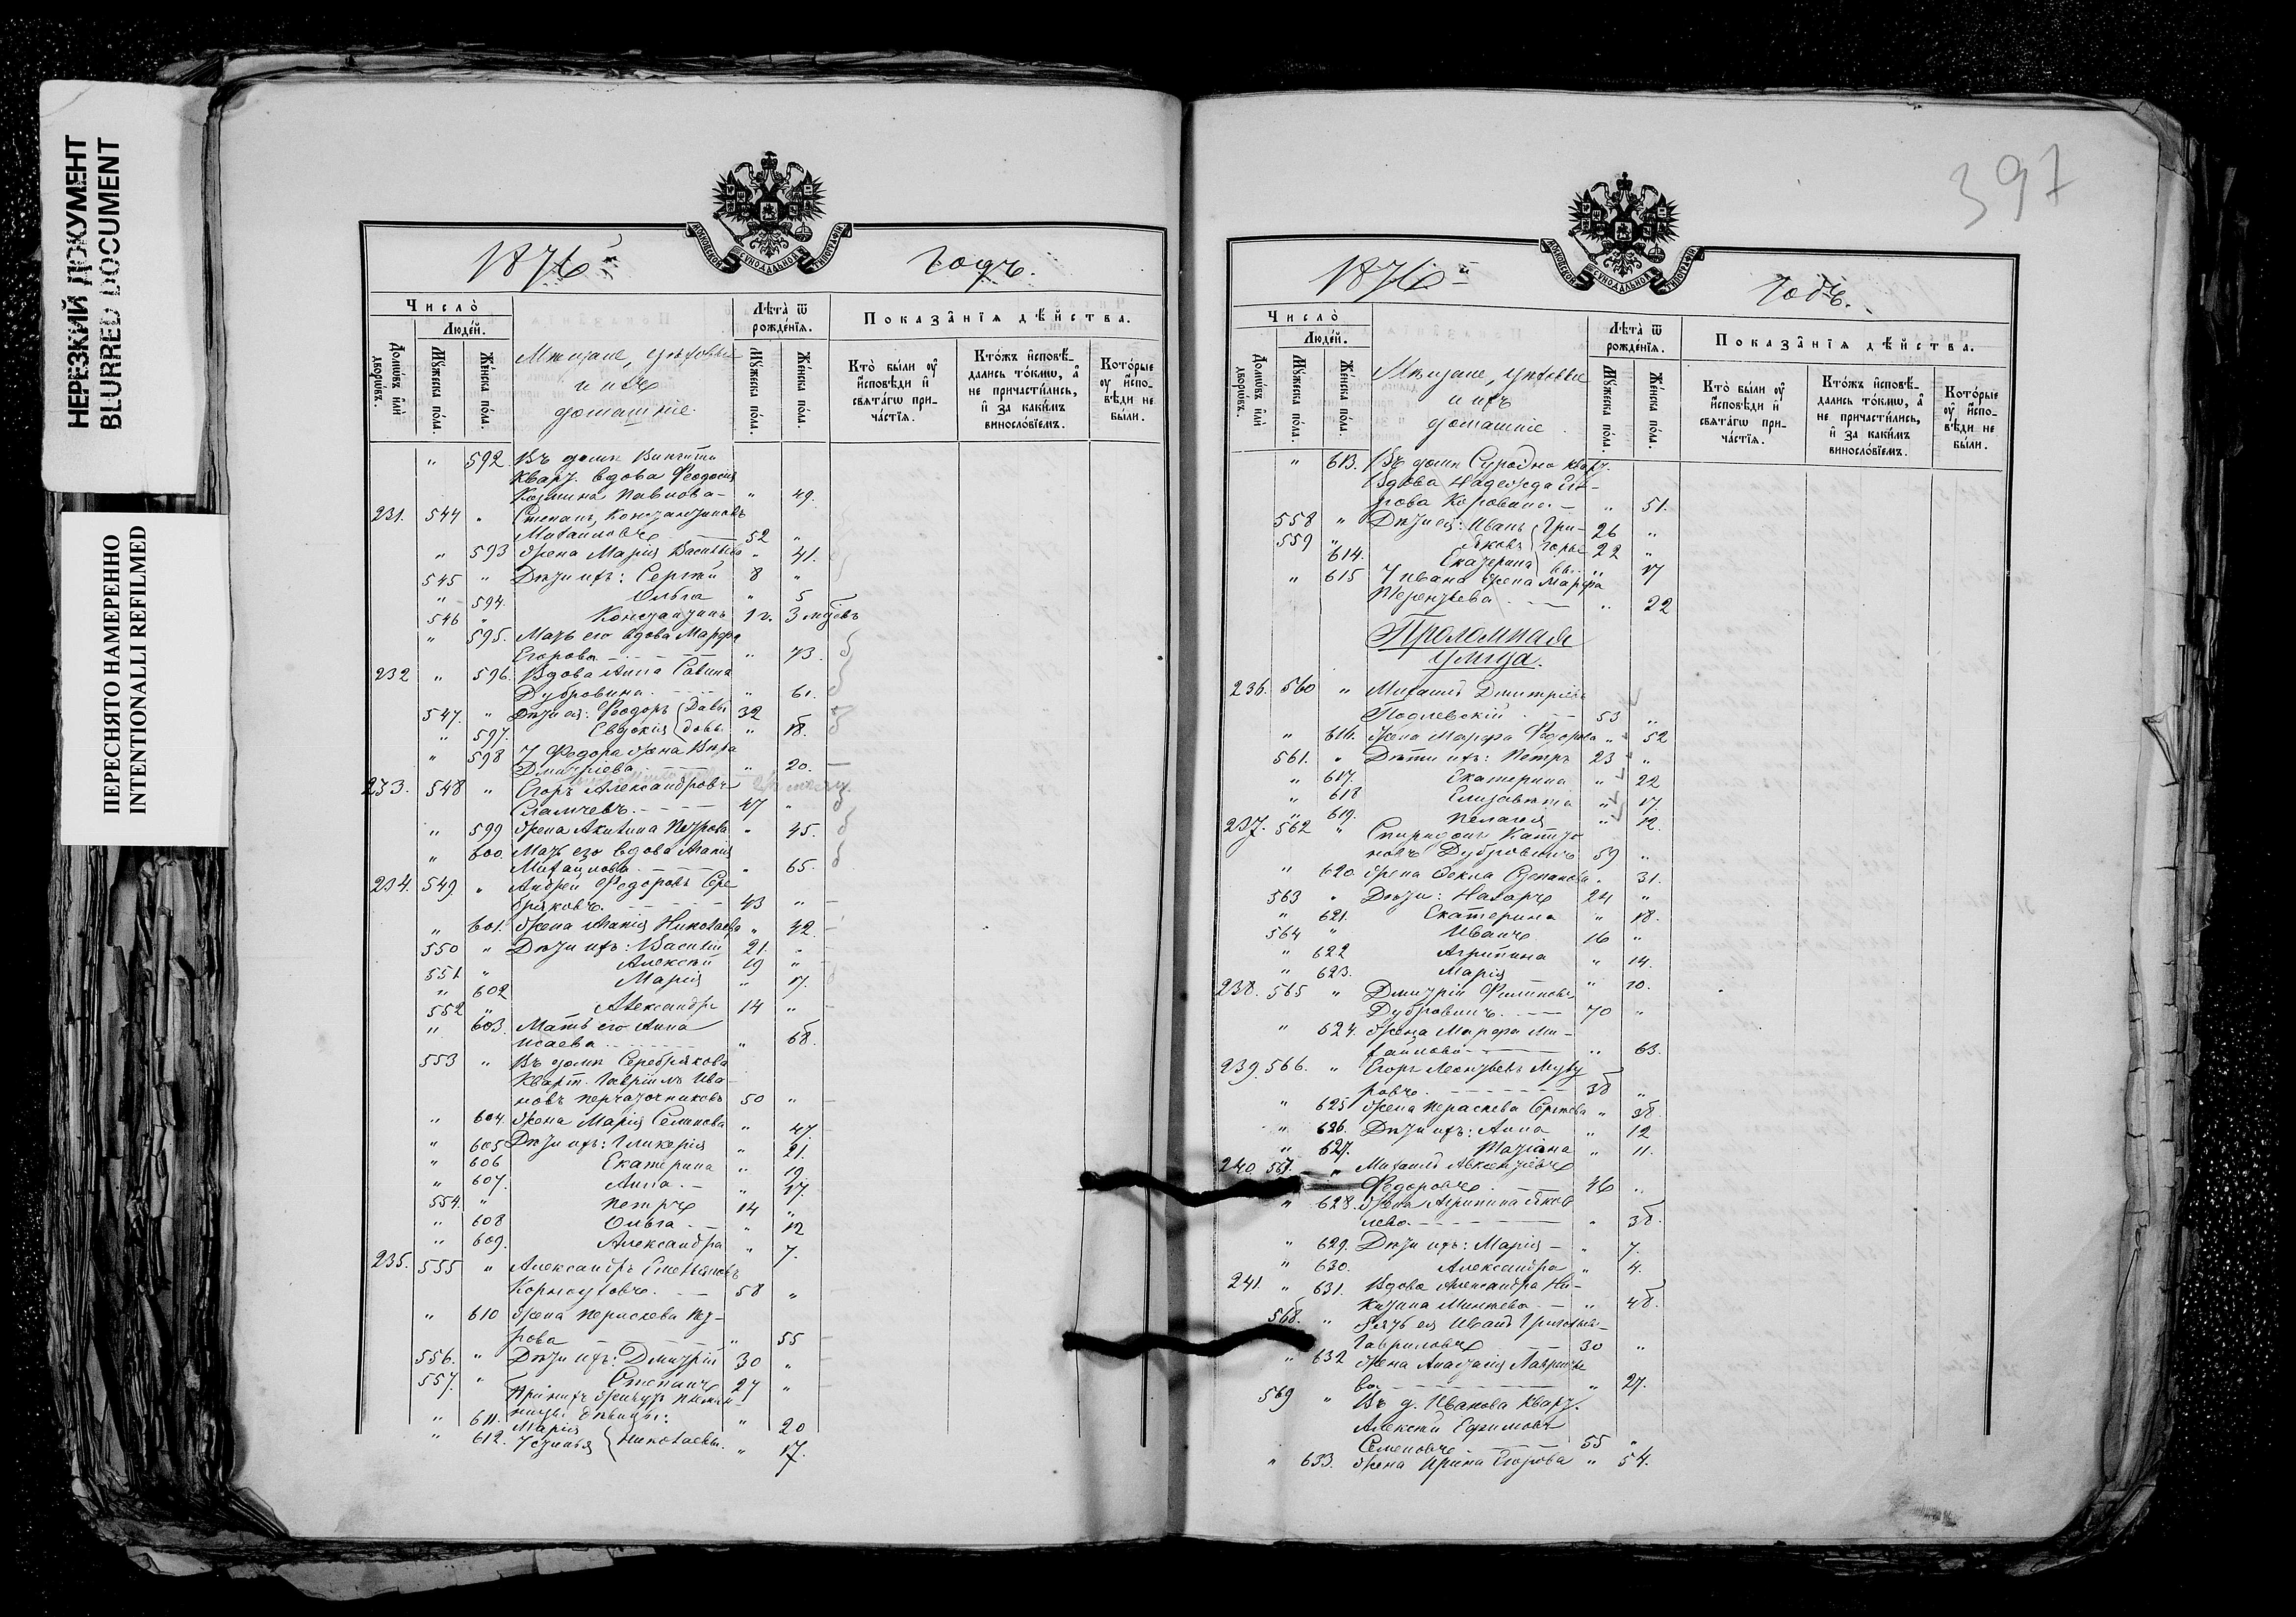 НЕРЕЗКИЙ ДОКУМЕНТ
BLURRED DOCUMENT
ПЕРЕСНЯТО НАМЕРЕННО
INTENTIONALLI REFILMED
МОСКОВСКОЙ СѴНОДАЛЬНОЙ ТИПОГРАФІИ
1876й годъ.
Число̀
Людей.
Домѡвъ или дворѡвъ.
Мꙋжеска пола.
Женска пола.
Мѣщане, цеховые
и ихъ
домашніе
Лѣта̀ ѿ рожденїѧ.
Мꙋжеска пола.
Женска пола.
Показанїѧ дѣйства.
Кто̀ были оу̓ исповѣди и свѧтагѡ причастїѧ.
Ктожъ исповѣдались токмѡ, а не причастились, и за какимъ винословїемъ.
Которые оу̓ исповѣди не были.
" 592. Въ домѣ
Кварт. вдова Феодосія
Козмина Павлова — " 49.
231. 544 " Степанъ Константиновъ
Михайловъ 52 "
" 593 Жена Марія Васильева " 41.
545 " Дѣти ихъ: Сергій 8 "
" 594. Ольга " 5
546 " Константинъ 1 г. 3 мѣс.
" 595. Мать его вдова Марфа
Егорова " 73.
232 " 596. Вдова Анна Савина
Дубровина. " 61.
547. " Дѣти ея: Феодоръ Давы- 32
" 597. Евдокія довы " 18.
" 598 У Федора жена Вѣра
Дмитріева " 20.
233. 548 " Егоръ Александровъ
47 "
" 599 Жена Акилина Петрова " 45.
" 600. Мать его вдова Агапія
Михайлова " 65.
234. 549. " Андрей Федоровъ Сере-
бряковъ. 43 "
" 601. Жена Агапія Николаева " 42.
550 " Дѣти ихъ: Василій 21. "
551 " Алексѣй 19 "
" 602 Марія " 17.
552 " Александръ 14 "
" 603. Мать его Анна
Исаева " 68.
553 " Въ домѣ Серебрякова
Кварт. Гавріилъ Ива-
новъ Перчаточниковъ 50 "
" 604. Жена Марія Семенова " 47.
" 605 Дѣти ихъ: Гликерія " 21.
" 606 Екатерина " 19.
" 607. Анна. " 17.
554. " Петръ 14 "
" 608 Ольга " 12
" 609. Александра " 7.
235. 555 " Александръ
Корноуховъ. 58 "
" 610 Жена Параскева Пет-
рова " 55
556. " Дѣти ихъ: Дмитрій 30 "
557. " Степанъ 27 "
При нихъ живутъ племян-
ницы дѣвицы:
" 611. Марія " 20
" 612. Устинья Николаевы. " 17.
397
МОСКОВСКОЙ СѴНОДАЛЬНОЙ ТИПОГРАФІИ
1876й годъ.
Число̀
Людей.
Домѡвъ или дворѡвъ.
Мꙋжеска пола.
Женска пола.
Мѣщане, цеховые
и ихъ
домашніе.
Лѣта̀ ѿ рожденїѧ.
Мꙋжеска пола.
Женска пола.
Показанїѧ дѣйства.
Кто̀ были оу̓ исповѣди и свѧтагѡ причастїѧ.
Ктожъ исповѣдались токмѡ, а не причастились, и за какимъ винословїемъ.
Которые оу̓ исповѣди не были.
" 613. Въ домѣ кварт.
Вдова Надежда Его-
рова Коровина — " 51.
558 " Дѣти ея: Иванъ Гри- 26 "
559 " Яковъ горье- 22 "
" 614. Екатерина вы. " 17
" 615 У Ивана жена Марфа
Терентьева " 22
Проломная
улица.
236. 560 " Михаилъ Дмитріевъ
53 "
" 616. Жена Марфа Федорова " 52
561. " Дѣти ихъ: Петръ 23 "
" 617. Екатерина " 22
" 618 Елизавета " 17.
" 619. Пелагея " 12.
237. 562 " Спиридонъ Капито-
новъ Дубровинъ 59 "
" 620. Жена Фекла Степанова " 31.
563 " Дѣти: Назаръ 24 "
" 621. Екатерина " 18.
564 " Иванъ 16 "
" 622 Агрипина " 14.
" 623. Марія " 10.
238. 565 " Дмитрій Филиповъ
Дубровинъ. 70 "
" 624. Жена Марфа Ми-
хайлова " 63.
239. 566. " Егоръ Леонтьевъ
38 "
" 625 Жена Параскева Сергѣева " 38.
" 626. Дѣти ихъ: Анна " 12
" 627. Татіана " 11.
240. 567. " Михаилъ Авксентіевъ
Федоровъ 46 "
" 628. Жена Агрипина Яков-
лева. " 38.
" 629. Дѣти ихъ: Марія — " 7.
" 630. Александра " 4.
241. " 631. Вдова Александра Ни-
китина " 48.
568. " Зять ея Иванъ Григорьевъ
Гавриловъ 30 "
" 632 Жена Анастасія Гаврило-
ва. " 27.
569 " Въ д. Иванова кварт.
Алексѣй Ефимовъ
Семеновъ 55 "
" 633. Жена Ирина Егорова " 54.